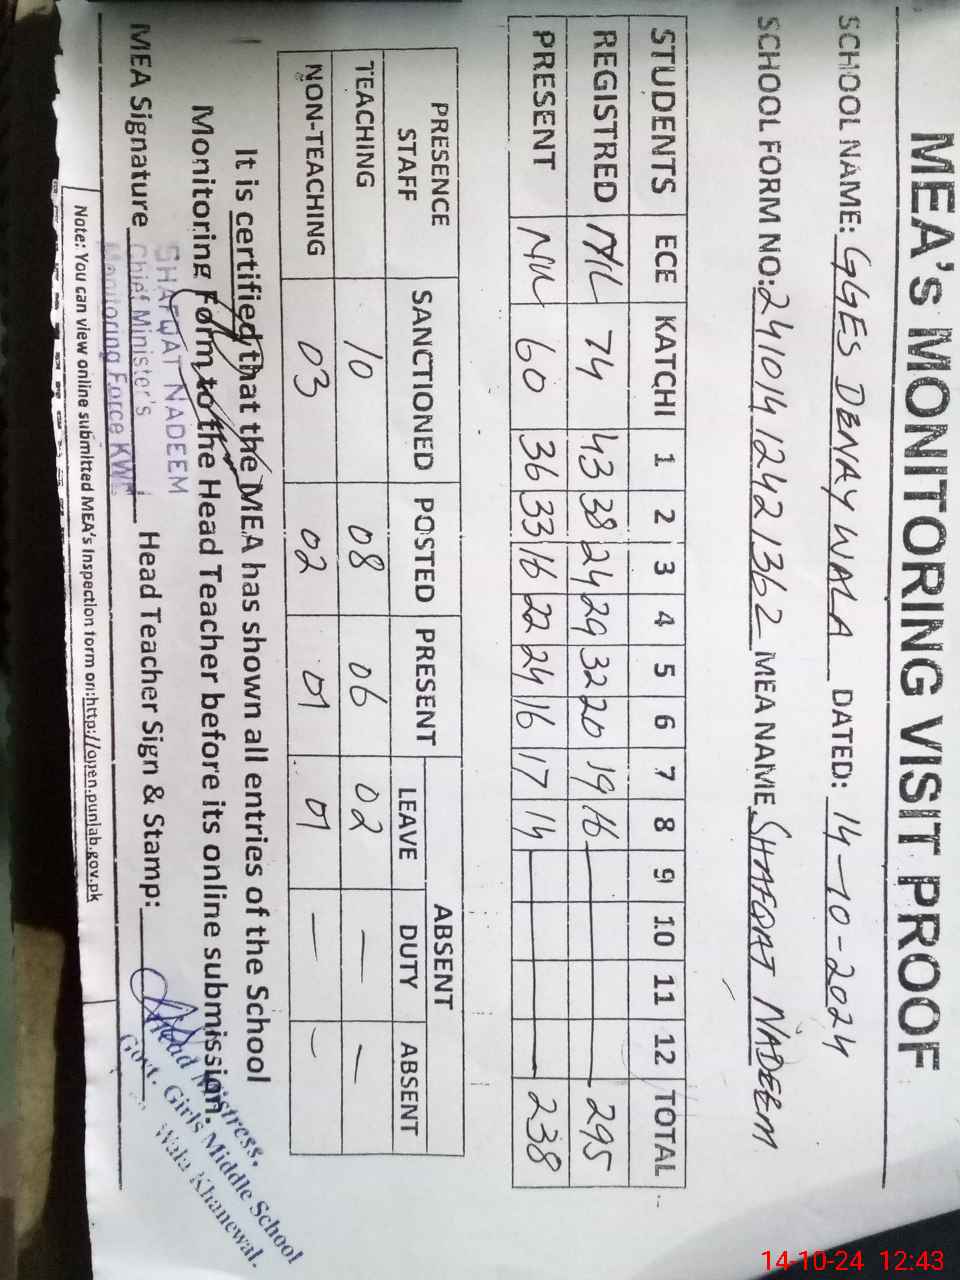 MEA's MONITORING VISIT PROOF
SCHOOL NAME: GGES DENAY WALA DATED: 14-10-2024
SCHOOL FORM NO: 24101412421362 MEA NAME SHAFQAT NADEEM
STUDENTS ECE KATCHI 1 2 3 4 5 6 7 8 9 10 11 12 TOTAL
REGISTRED NIL 74 43 38 24 29 32 20 19 16 — 295
PRESENT NIL 60 36 33 16 22 24 16 17 14 — 238
PRESENCE STAFF SANCTIONED POSTED PRESENT ABSENT
LEAVE DUTY ABSENT
TEACHING 10 08 06 02 — —
NON-TEACHING 03 02 01 01 — —
It is certified that the MEA has shown all entries of the School
Monitoring Form to the Head Teacher before its online submission.
MEA Signature Head Teacher Sign & Stamp:
SHAFQAT NADEEM
Chief Minister's
Monitoring Force KWL
Head Mistress,
Govt. Girls Middle School
Wala Khanewal.
Note: You can view online submitted MEA's Inspection form on:http://open.punjab.gov.pk
14-10-24 12:43